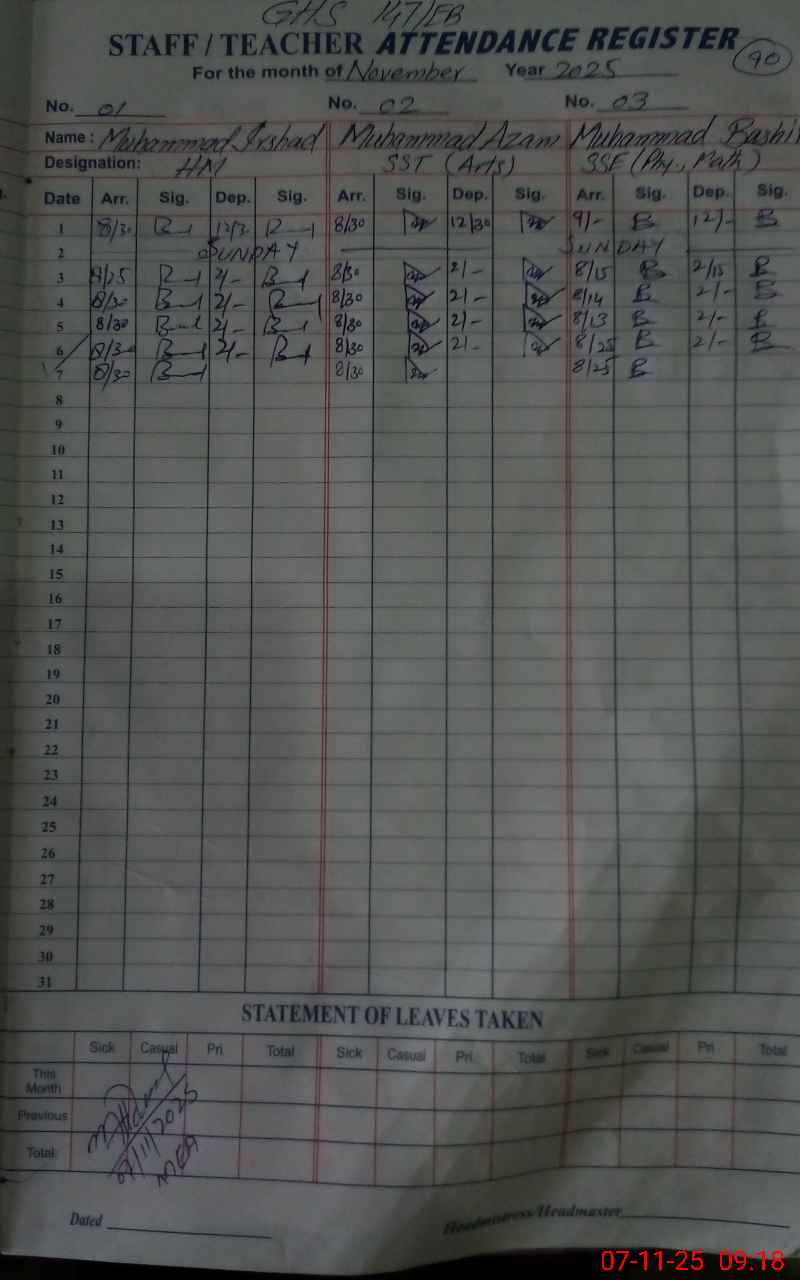 GHS 147/EB
STAFF / TEACHER ATTENDANCE REGISTER
90
For the month of November Year 2025
No. 01 No. 02 No. 03
Name : Muhammad Irshad Muhammad Azam Muhammad Bashir
Designation: HM SST (Arts) SSE (Phy., Math)
Date Arr. Sig. Dep. Sig. Arr. Sig. Dep. Sig. Arr. Sig. Dep. Sig.
1 8/30 12/30 8/30 12/30 9/- B 12/- B
2 SUNDAY SUNDAY
3 8/25 2/- 8/30 2/- 8/15 B 2/15 B
4 8/30 2/- 8/30 2/- 8/14 B 2/- B
5 8/30 2/- 8/30 2/- 8/13 B 2/- B
6 8/30 2/- 8/30 2/- 8/25 B 2/- B
7 8/30 8/30 8/25 B
8
9
10
11
12
13
14
15
16
17
18
19
20
21
22
23
24
25
26
27
28
29
30
31
STATEMENT OF LEAVES TAKEN
Sick Casual Pri Total Sick Casual Pri Total Sick Casual Pri Total
This Month
Previous
Total:
07/11/2025
MEA
Dated
Headmistress/Headmaster
07-11-25 09.18